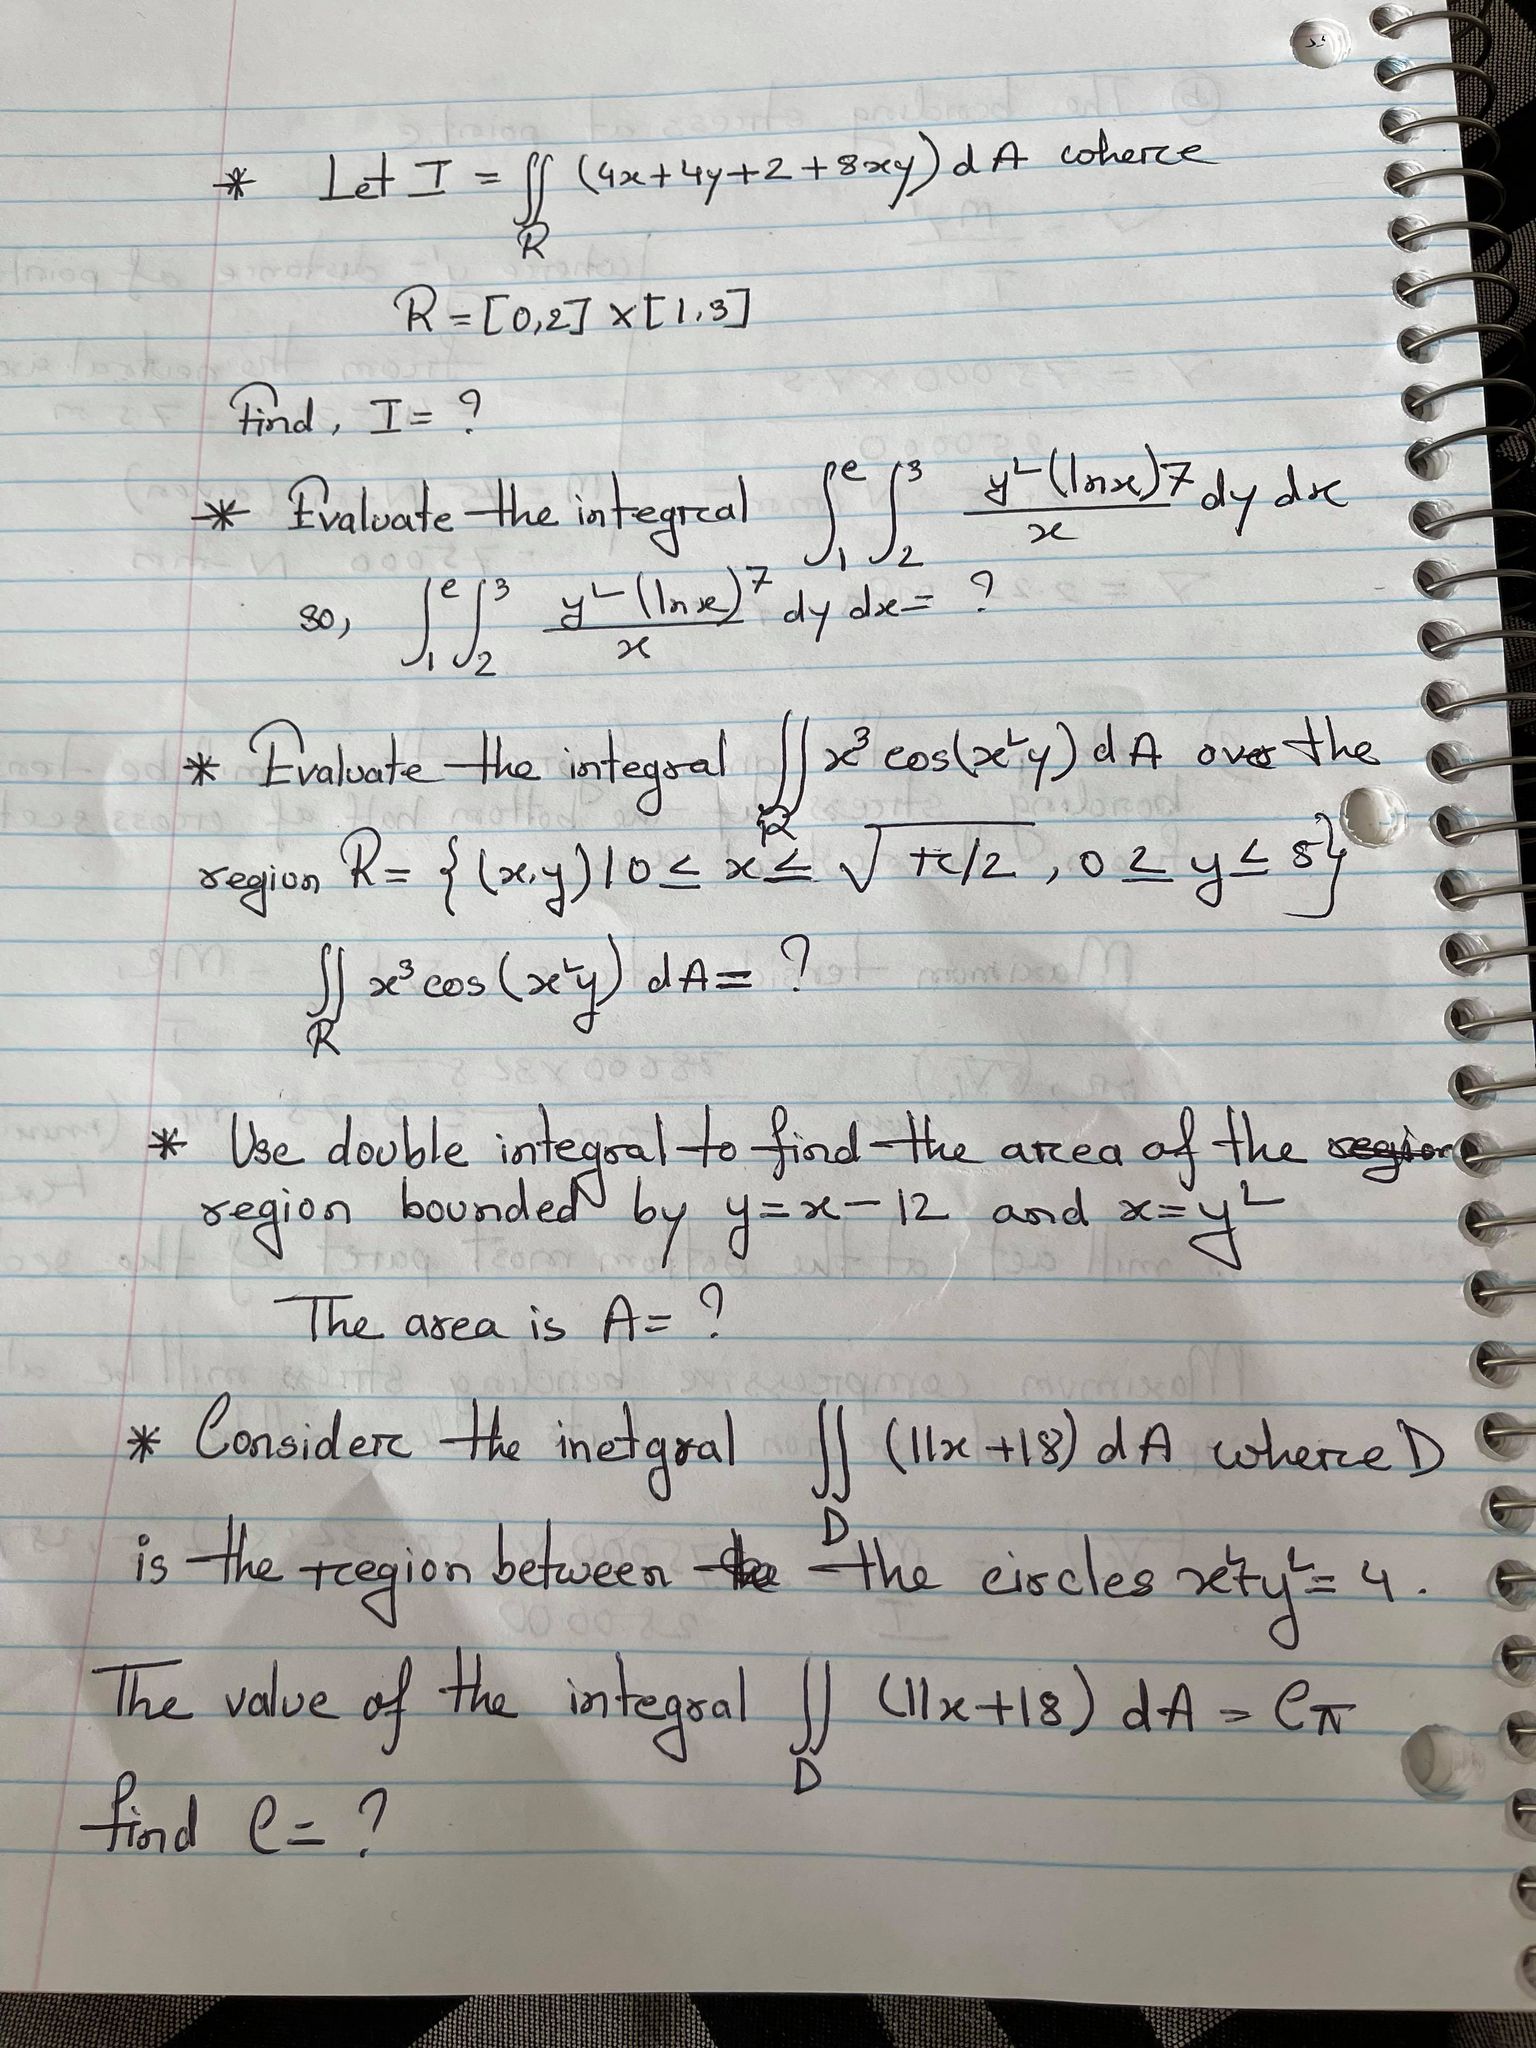 * Let I = ∬_R (4x+4y+2+8xy) dA where
R = [0,2] × [1,3]
Find, I = ?
* Evaluate the integral ∫_1^e ∫_2^3 y²(lnx)7/x dy dx
so, ∫_1^e ∫_2^3 y²(lnx)^7/x dy dx = ?
* Evaluate the integral ∬_R x³ cos(x²y) dA over the
region R = {(x,y) | 0 ≤ x ≤ √π/2, 0 ≥ y ≤ 5}
∬_R x³ cos(x²y) dA = ?
* Use double integral to find the area of the region
region bounded by y = x - 12 and x = y²
The area is A = ?
* Consider the inetgral ∬_D (11x+18) dA where D
is the region between the the circles x²+y² = 4.
The value of the integral ∬_D (11x+18) dA = eπ
find e = ?